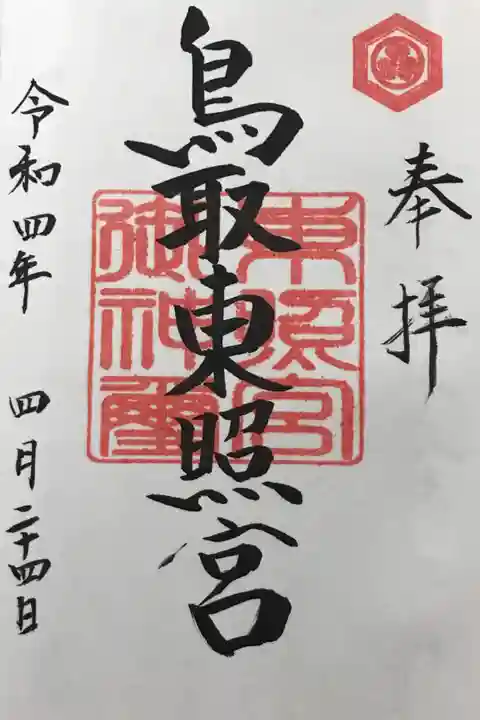 奉拝
鳥取東照宮
東照宮
御神璽
令和四年 四月二十四日